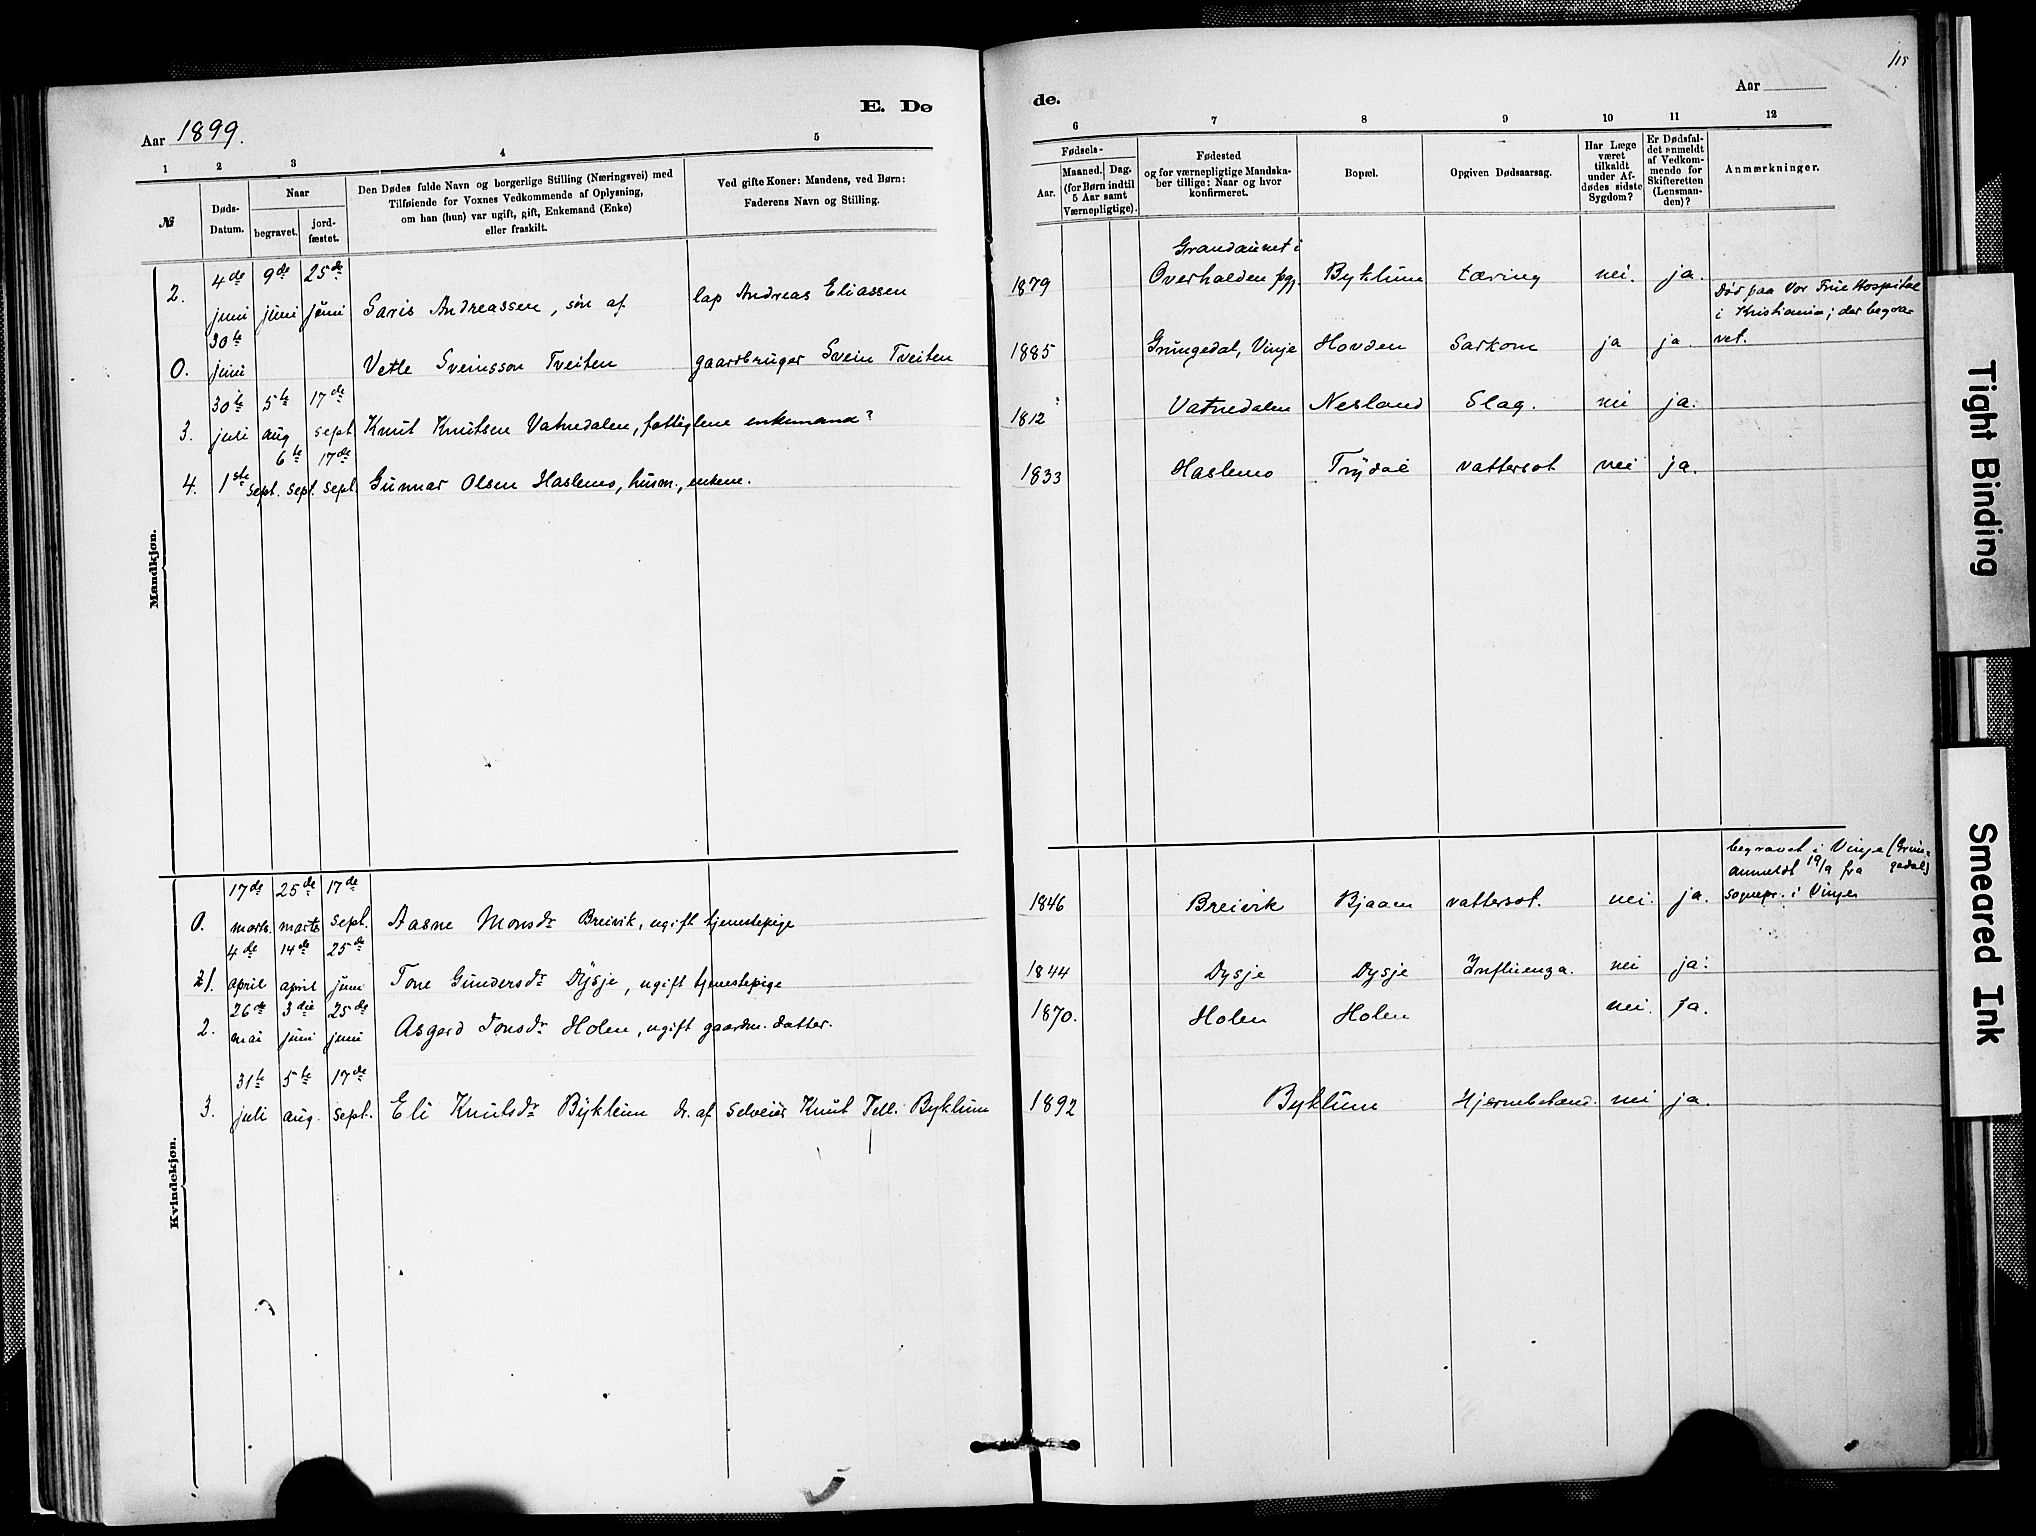 E. Dø
de.
118
Aar 1899.
Aar
1 2 3 4 5
6 7 8 9 10 11 12
№
Døds-
Datum.
Naar
begravet.
jord-
fæstet.
Den Dødes fulde Navn og borgerlige Stilling (Næringsvei) med
Tilføiende for Voxnes Vedkommende af Oplysning,
om han (hun) var ugift, gift, Enkemand (Enke)
eller fraskilt.
Ved gifte Koner: Mandens, ved Børn:
Faderens Navn og Stilling.
Fødsels-
Aar.
Maaned. Dag.
(for Børn indtil
5 Aar samt
Værnepligtige).
Fødested
og for værnepligtige Mandska-
ber tillige: Naar og hvor
konfirmeret.
Bopæl.
Opgiven Dødsaarsag.
Har Læge
været
tilkaldt
under Af-
dødes sidste
Sygdom?
Er Dødsfal-
det anmeldt
af Vedkom-
mende for
Skifteretten
(Lensman-
den)?
Anmærkninger.
Mandkjøn.
2. 4de juni 9de juni 25de juni Saris Andreassen, søn af lap Andreas Eliassen 1879 Grandaunet i Overhalden pgj. Byklum tæring nei. ja.
0. 30te juni Vetle Sveinsson Tveiten gaardbruger Svein Tveiten 1885 Grungedal, Vinje Hovden Sarkom ja ja. Død paa Vor Frue Hospital
i Kristiania; der begra-
vet.
3. 30te juli 5te aug. 17de sept Knut Knutsen Vatnedalen, fattiglem enkemand? 1812 Vatnedalen Nesland Slag. nei ja.
4. 1ste sept. 6te sept. 17de sept. Gunnar Olsen Haslemo, husm., enkem. 1833 Haslemo Trydal vattersot nei ja.
Kvindekjøn.
0. 17de marts. 25de marts 17de sept. Aasne Monsdr Breivik, ugift tjenestepige 1846 Breivik Bjaaen vattersot. nei. ja. begravet i Vinje (Grun-
anmeldt 19/9 fra gedal)
sognepr. i Vinje
1. 4de april 14de april 25de juni Tone Gundersdr Dysje, ugift tjenestepige 1844 Dysje Dysje Influenza. nei ja.
2. 26de mai 3die juni 25de juni Asgerd Jonsdr Holen, ugift gaardm. datter. 1870. Holen Holen nei. ja.
3. 31te juli 5te aug. 17de sept. Eli Knutsdr Byklum dr. af selveier Knut Tell. Byklum 1892 Byklum Hjernebetænd. nei ja.
Tight Binding
Smeared Ink